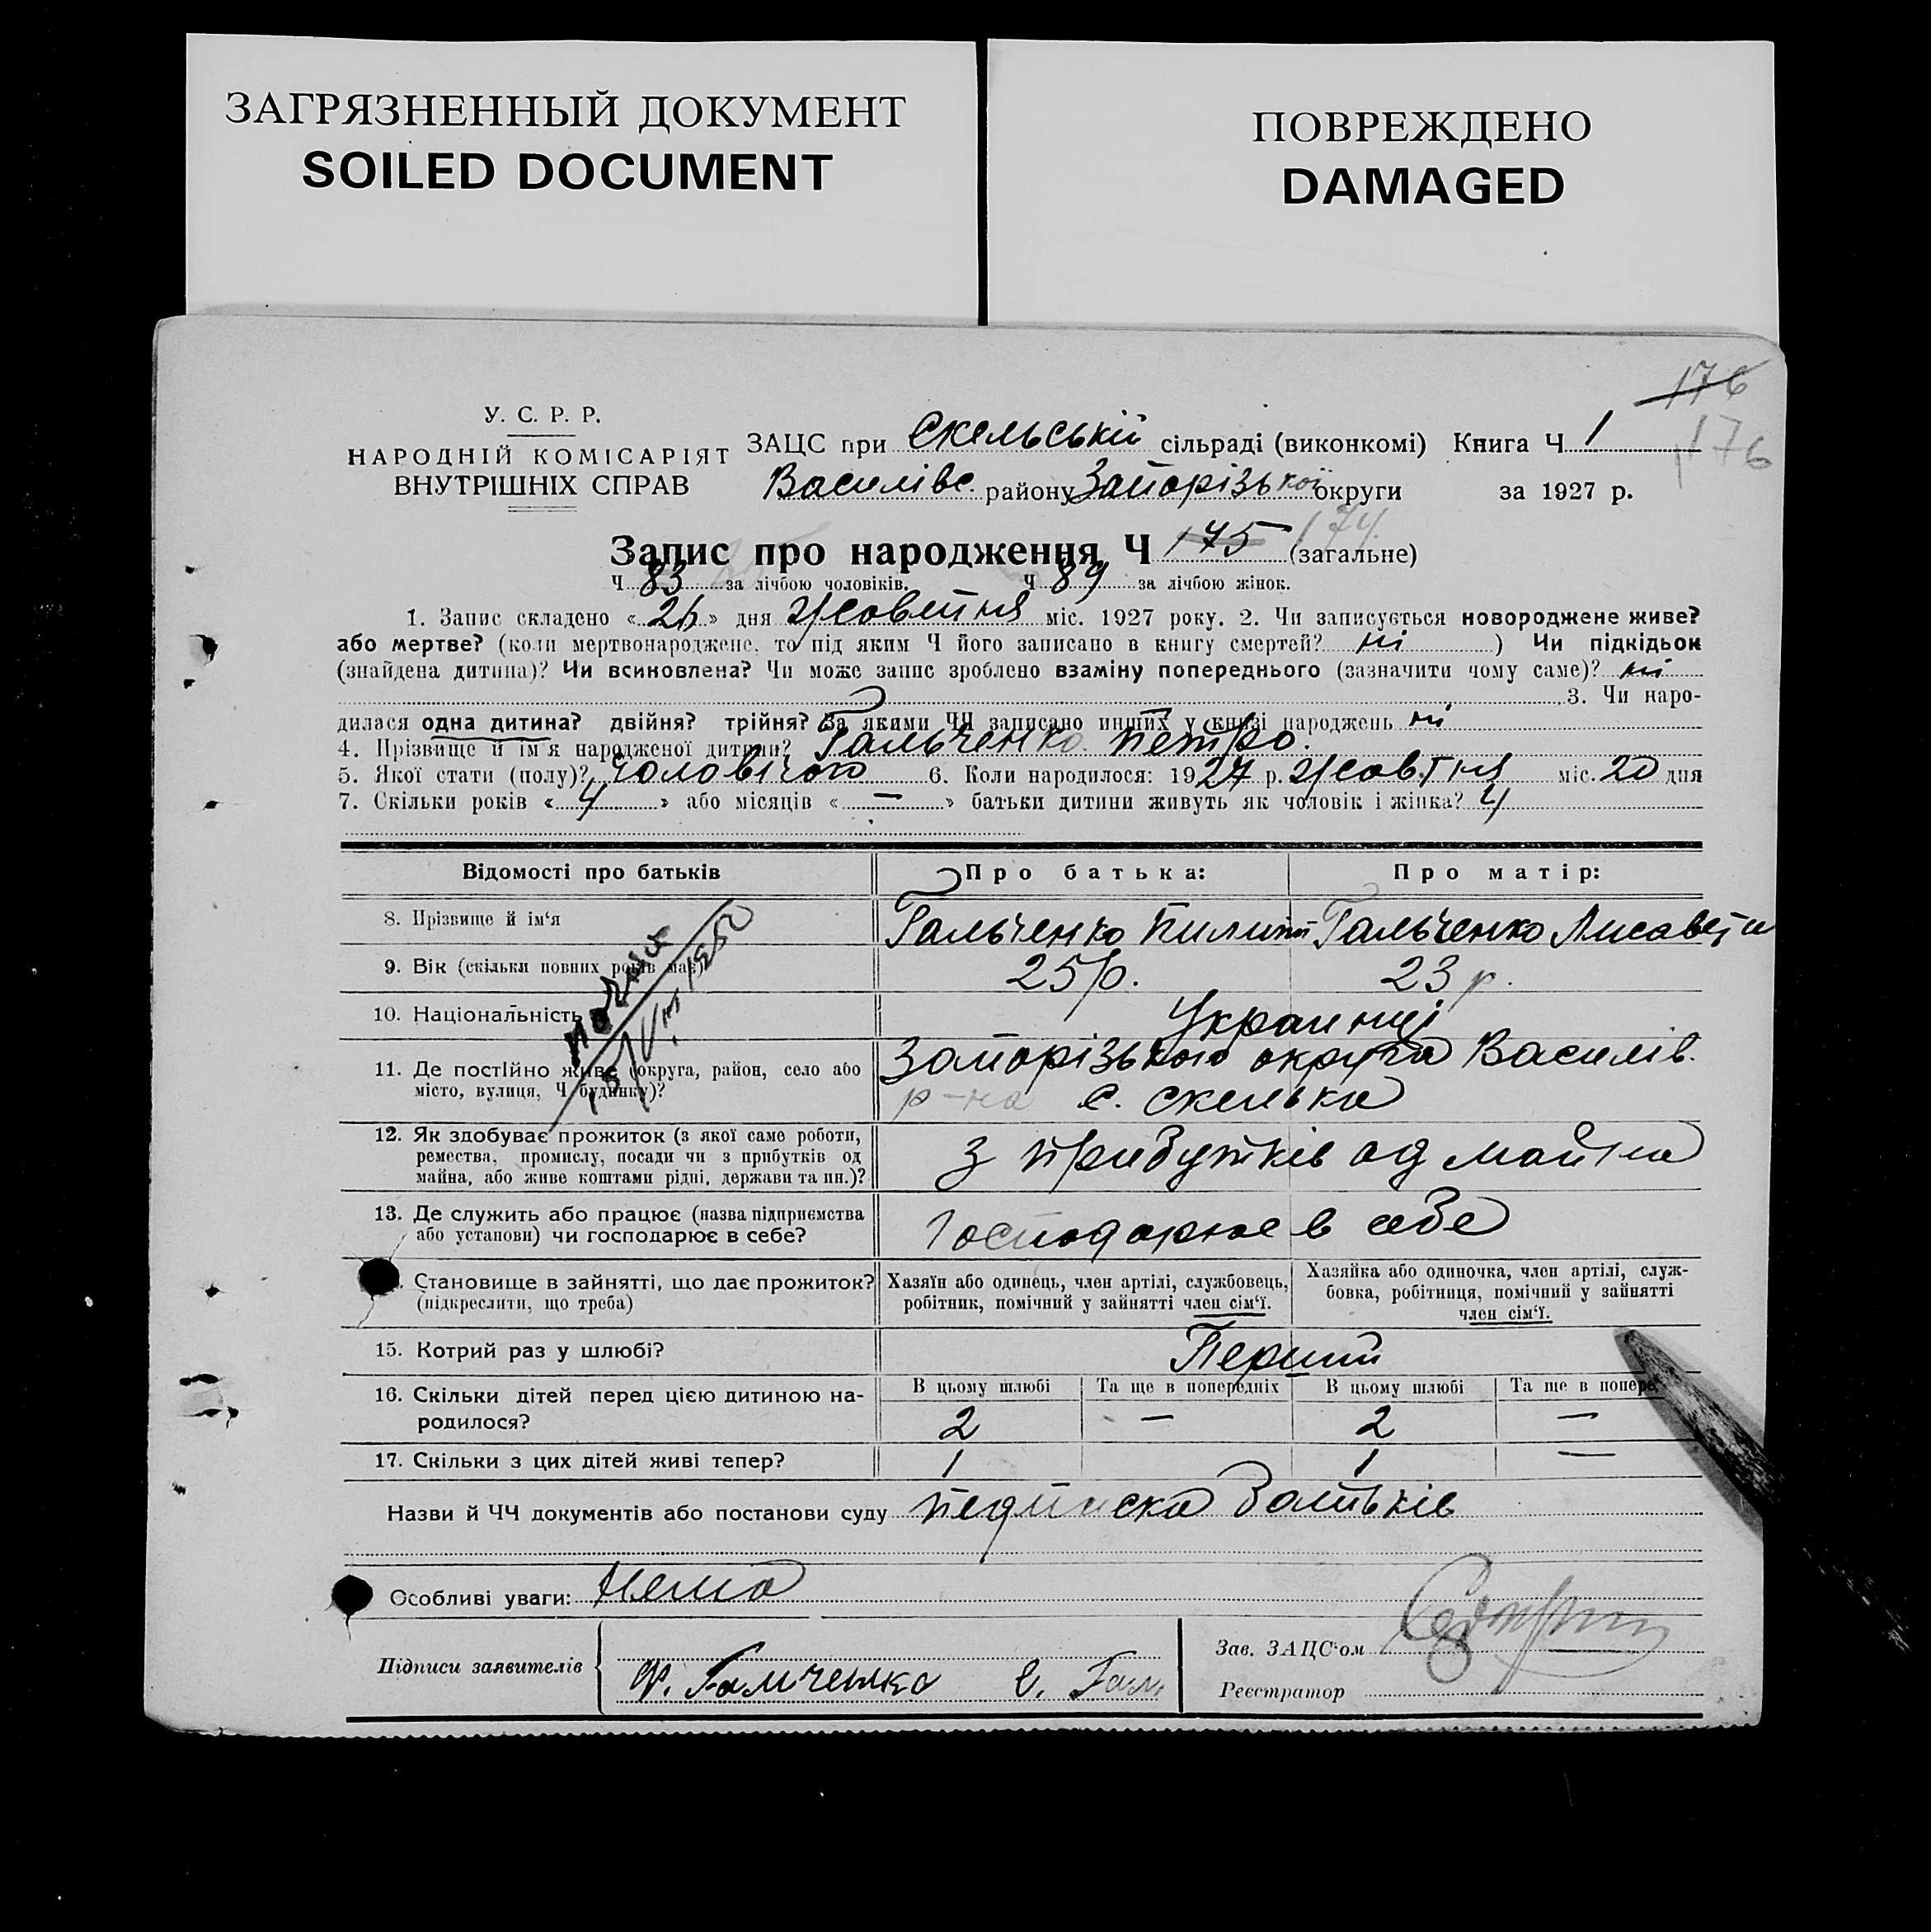 ЗАГРЯЗНЕННЫЙ ДОКУМЕНТ
SOILED DOCUMENT
ПОВРЕЖДЕНО
DAMAGED
176
176
У. С. Р. Р.
НАРОДНІЙ КОМІСАРІЯТ
ВНУТРІШНІХ СПРАВ
ЗАЦС при Скельській сільраді (виконкомі) Книга Ч 1
Василівс. району Запорізької округи за 1927 р.
Запис про народження Ч 175 174 (загальне)
Ч 83 за лічбою чоловіків. Ч 89 за лічбою жінок.
1. Запис складено « 26 » дня Жовтня міс. 1927 року. 2. Чи записується новороджене живе?
або мертве? (коли мертвонароджене, то під яким Ч його записано в книгу смертей? ні ) Чи підкідьок
(знайдена дитина)? Чи всиновлена? Чи може запис зроблено взаміну попереднього (зазначити чому саме)? ні
3. Чи наро-
дилася одна дитина? двійня? трійня? За якими ЧЧ записано инших у книзі народжень ні
4. Прізвище й ім'я народженої дитини? Гальченко Петро.
5. Якої стати (полу)? чоловічого 6. Коли народилося: 1927 р. Жовтня міс. 20 дня
7. Скільки років « 4 » або місяців « — » батьки дитини живуть як чоловік і жінка? 4
Відомості про батьків Про батька: Про матір:
8. Прізвище й ім'я Гальченко Пилип Гальченко Лисавета
9. Вік (скільки повних років має) 25 р. 23 р.
10. Національність Украинці
11. Де постійно живе (округа, район, село або Запорізькою округа Василів.
місто, вулиця, Ч будинку)? р-на с. Скелька
12. Як здобуває прожиток (з якої саме роботи,
ремества, промислу, посади чи з прибутків од
майна, або живе коштами рідні, держави та ин.)? з прибутків од майна
13. Де служить або працює (назва підприємства
або установи) чи господарює в себе? Господарює в себе
Становище в зайнятті, що дає прожиток?
(підкреслити, що треба)
Хазяїн або одинець, член артілі, службовець,
робітник, помічний у зайнятті член сім'ї.
Хазяйка або одиночка, член артілі, служ-
бовка, робітниця, помічний у зайнятті
член сім'ї.
15. Котрий раз у шлюбі? Перший
16. Скільки дітей перед цією дитиною на-
родилося?
В цьому шлюбі Та ще в попередніх В цьому шлюбі Та ще в попере
2 — 2 —
17. Скільки з цих дітей живі тепер? 1 1 —
Назви й ЧЧ документів або постанови суду підписка батьків
Особливі уваги: Нема
Підписи заявителів Ф. Гальченко Є. Гал
Зав. ЗАЦС'ом
Реєстратор